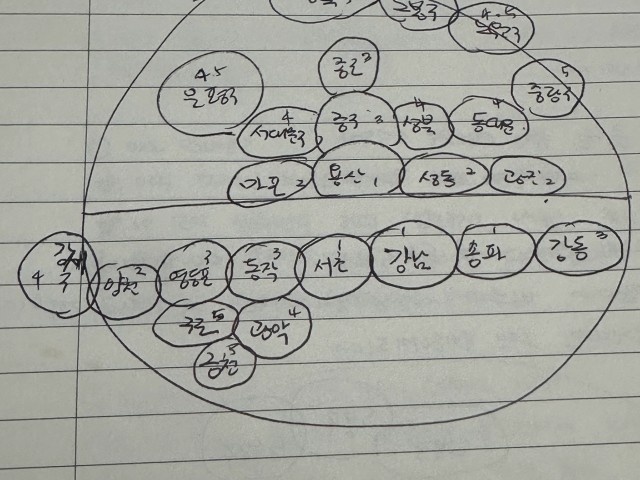 4.5
종로 3
4.5
은평구
5
중랑구
4
서대문구
중구 3
4
성북
4
동대문
마포 2
용산 1
성동 2
광진 2
강서구
4
양천 2
영등포 3
동작 3
서초 1
강남 1
송파 1
강동 3
구로 5
관악 4
금천 5